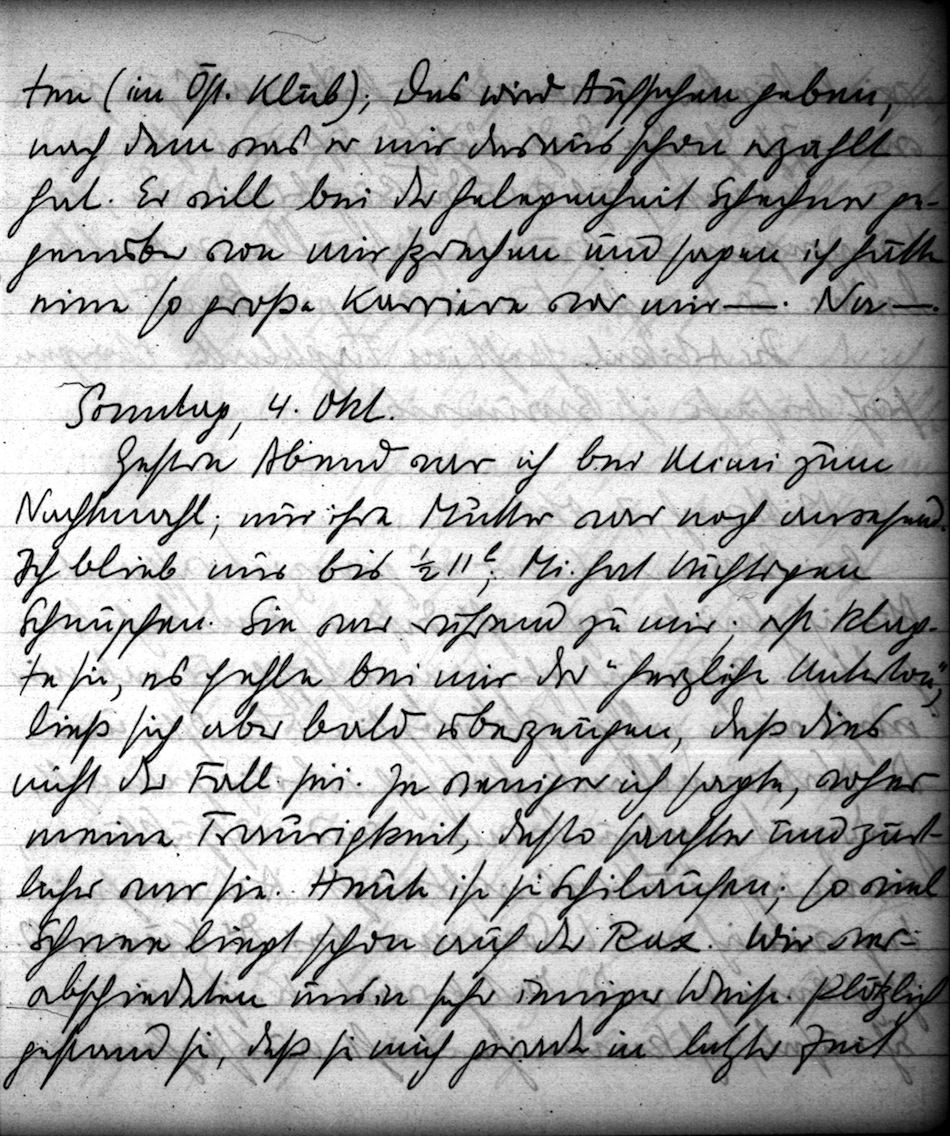 ten (im Öst. Klub); das wird Aufsehen geben,
nach dem was er mir daraus schon erzählt
hat. Er will bei der Gelegenheit Schechner ge-
genüber von mir sprechen und sagen ich hätte
eine so große Karriere vor mir —. Na —.
Sonntag, 4. Okt.
Gestern Abend war ich bei Mimi zum
Nachtmahl; nur ihre Mutter war noch anwesend.
Ich blieb nur bis ½ 11h; Mi. hat tüchtigen
Schnupfen. Sie war rührend zu mir; erst klag-
te sie, es fehle bei mir der "herzliche Unterton",
ließ sich aber bald überzeugen, daß dies
nicht der Fall sei. Je weniger ich sagte, woher
meine Traurigkeit, desto sanfter und zärt-
licher war sie. Heute ist sie Schilaufen; so viel
Schnee liegt schon auf der Rax. Wir ver-
abschiedeten uns in sehr inniger Weise. Plötzlich
gestand sie, daß sie mich gerade in letzter Zeit